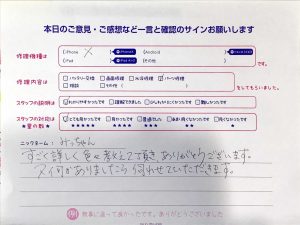 本日のご意見・ご感想など一言と確認のサインお願いします
修理機種は
iPhone X
Android
iPad
その他
です。
修理内容は
バッテリー交換 画面修理 水没修理 パーツ修理
相談 その他
をしてもらいました。
スタッフの説明は
わかりやすかったです 理解できました 少しわかりにくかったです 難しかったです
スタッフの対応は
★星の数★
とても良かったです 良かったです 普通でした
ニックネーム: みっちゃん
すごく詳しく色々教えて頂きありがとうございます。
又何かありましたら伺わせていただきます。
無事に直って良かったです。ありがとうございました